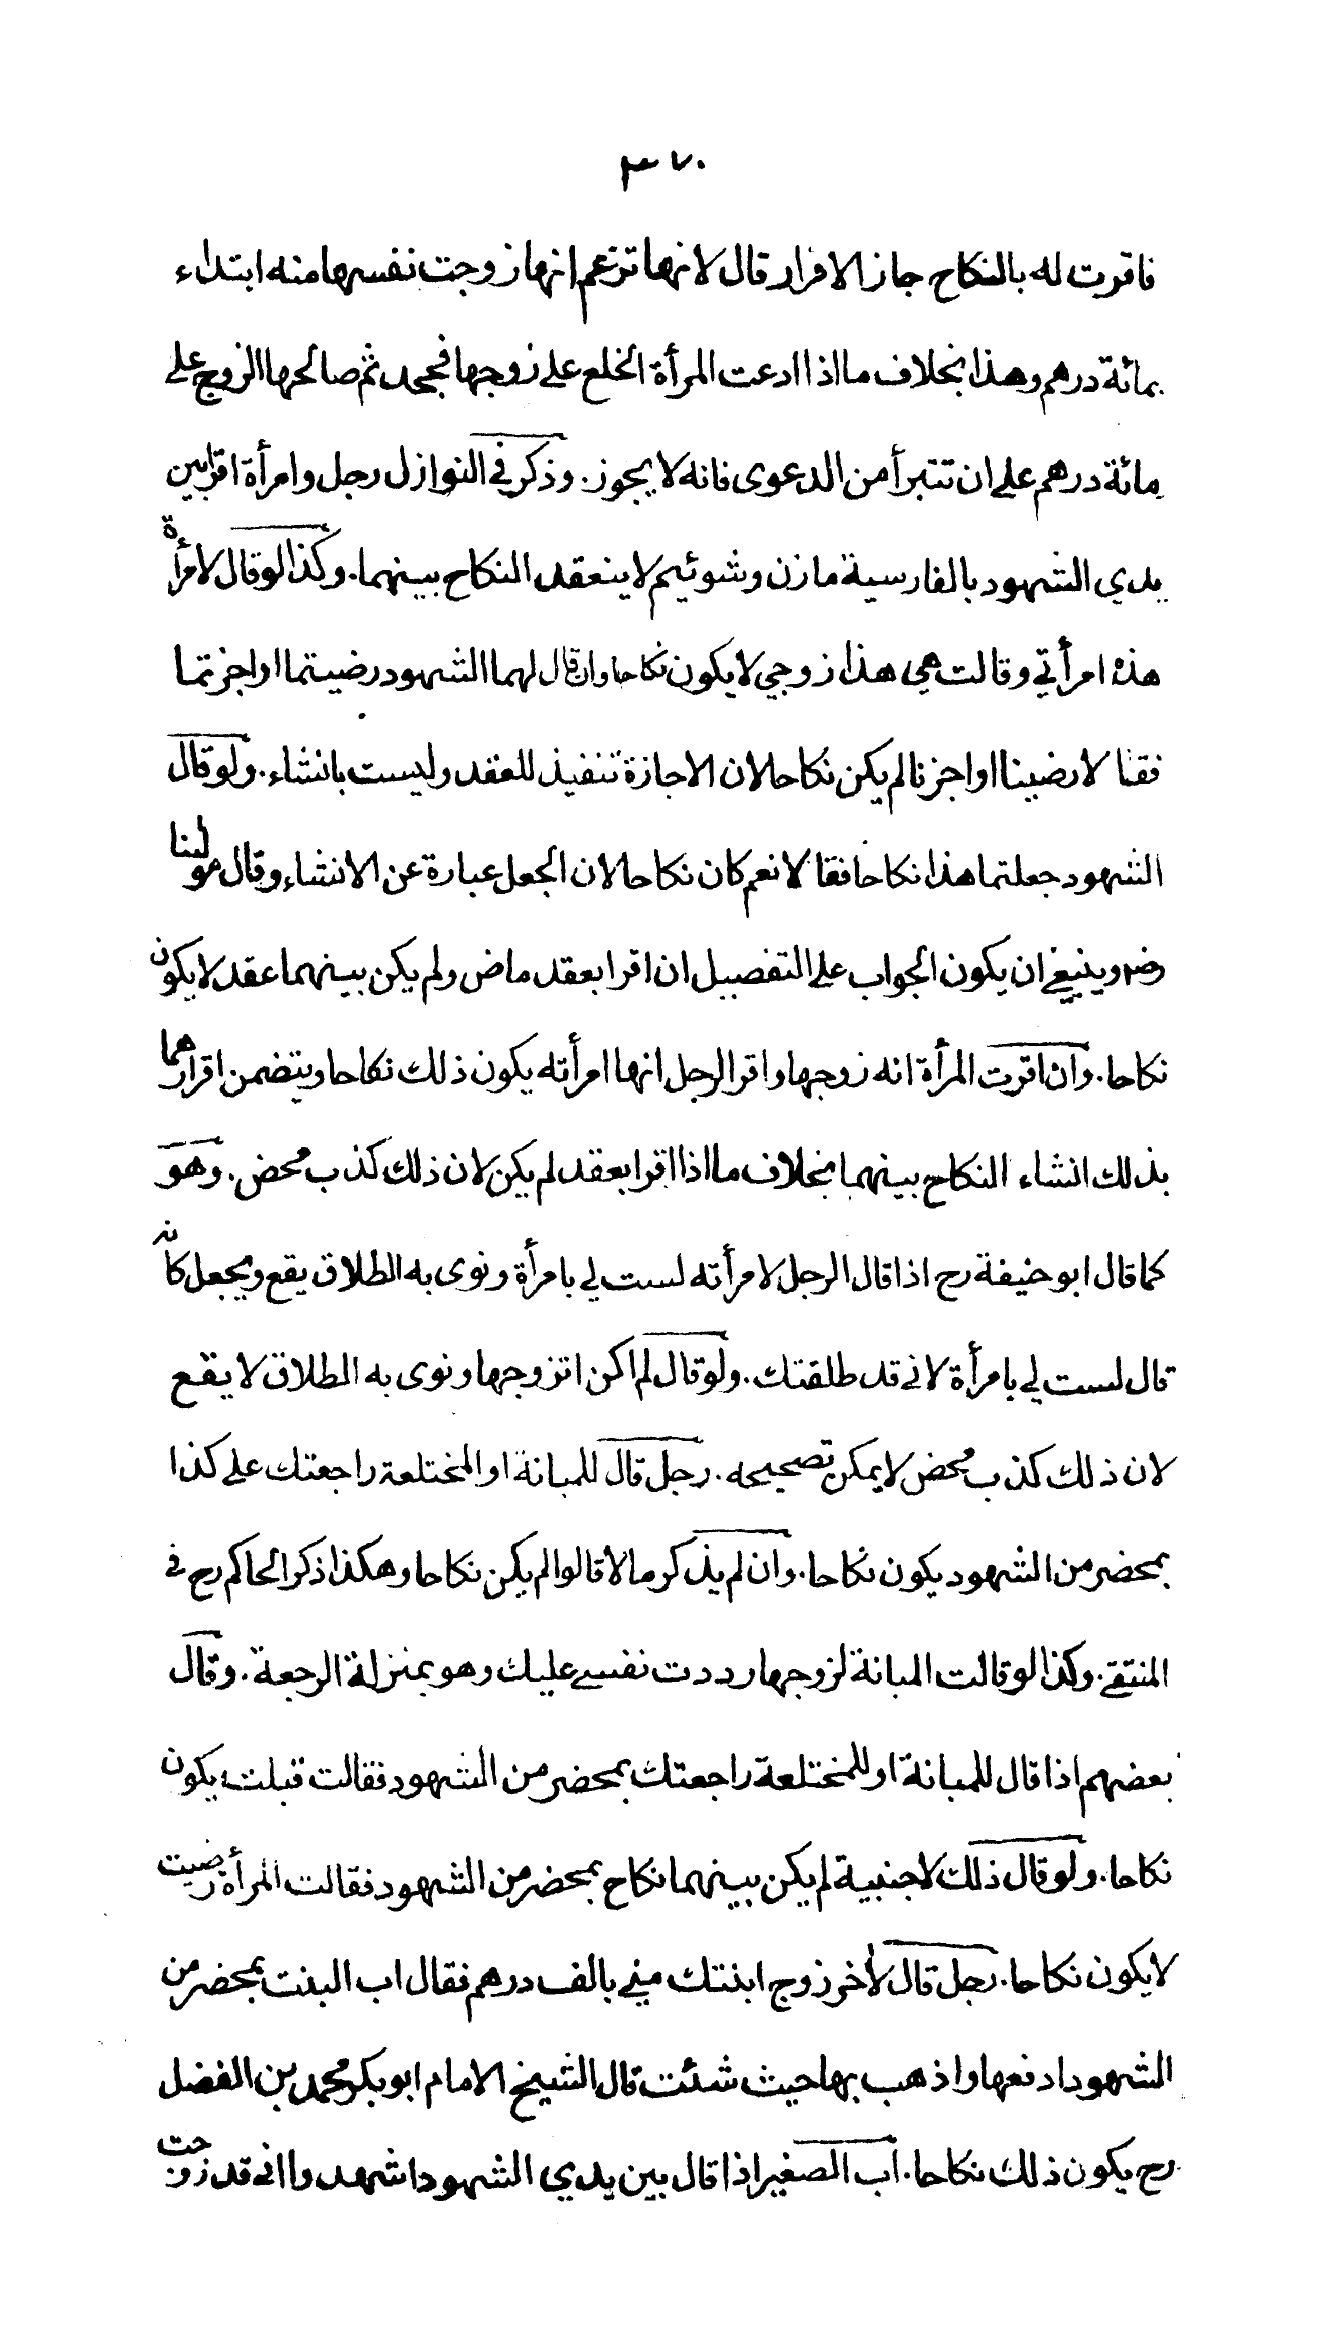 ٣٧٠
فاقرت له بالنكاح جاز الاقرار قال لانها تزعم انها زوجت نفسها منه ابتداء
بمائة درهم وهذا بخلاف ما اذا ادعت المرأة الخلع على زوجها فجحد ثم صالحها الزوج على
مائة درهم على ان تتبرأ من الدعوى فانه لا يجوز. وذكر في النوازل رجل وامرأة اقرا بين
يدي الشهود بالفارسية ما زن وشوئيم لا ينعقد النكاح بينهما. وكذا لو قال لامرأة
هذه امرأتي وقالت هي هذا زوجي لا يكون نكاحا وان قال لهما الشهود رضيتما او اجزتما
فقالا رضينا او اجزنا لم يكن نكاحا لان الاجازة تنفيذ للعقد وليست بانشاء. ولو قال
الشهود جعلتما هذا نكاحا فقالا نعم كان نكاحا لان الجعل عبارة عن الانشاء وقال مولينا
رضه وينبغي ان يكون الجواب على التفصيل ان اقرا بعقد ماض ولم يكن بينهما عقد لا يكون
نكاحا. وان اقرت المرأة انه زوجها واقر الرجل انها امرأته يكون ذلك نكاحا ويتضمن اقرارهما
بذلك انشاء النكاح بينهما بخلاف ما اذا اقرا بعقد لم يكن لان ذلك كذب محض. وهو
كما قال ابو حنيفة رح اذا قال الرجل لامرأته لست لي بامرأة ونوى به الطلاق يقع ويجعل كانه
قال لست لي بامرأة لاني قد طلقتك. ولو قال لم اكن اتزوجها ونوى به الطلاق لا يقع
لان ذلك كذب محض لا يمكن تصحيحه. رجل قال للمبانة او المختلعة راجعتك على كذا
بمحضر من الشهود يكون نكاحا. وان لم يذكر مالا قالوا لم يكن نكاحا وهكذا ذكر الحاكم رح في
المنتقى. وكذا لو قالت المبانة لزوجها رددت نفسي عليك وهو بمنزلة الرجعة. وقال
بعضهم اذا قال للمبانة او للمختلعة راجعتك بمحضر من الشهود فقالت قبلت يكون
نكاحا. ولو قال ذلك لاجنبية لم يكن بينهما نكاح بمحضر من الشهود فقالت المرأة رضيت
لا يكون نكاحا. رجل قال لأخر زوج ابنتك مني بالف درهم فقال اب البنت بمحضر من
الشهود ادفعها واذهب بها حيث شئت قال الشيخ الامام ابو بكر محمد بن الفضل
رح يكون ذلك نكاحا. اب الصغير اذا قال بين يدي الشهود اشهدوا اني قد زوجت